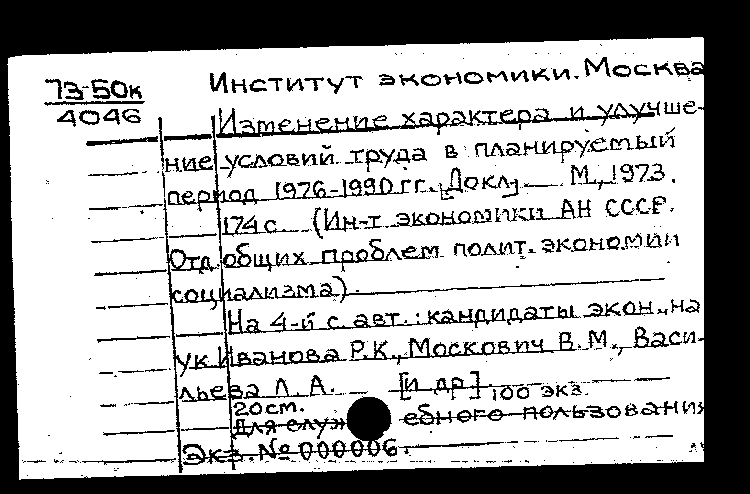 73-50к
4046
Институт экономики. Москва
Изменение характера и улучше-
ние условий труда в планируемый
период 1976-1990 гг. [Докл.] — М., 1973.
174 с. (Ин-т экономики АН СССР.
Отд общих проблем полит. экономии
социализма).
На 4-й с. авт.: кандидаты экон. на
ук Иванова Р.К., Москович В.М., Васи-
льева Л.А. [и др.] 100 экз.
20 см.
Для служебного пользования
Экз. № 000006.